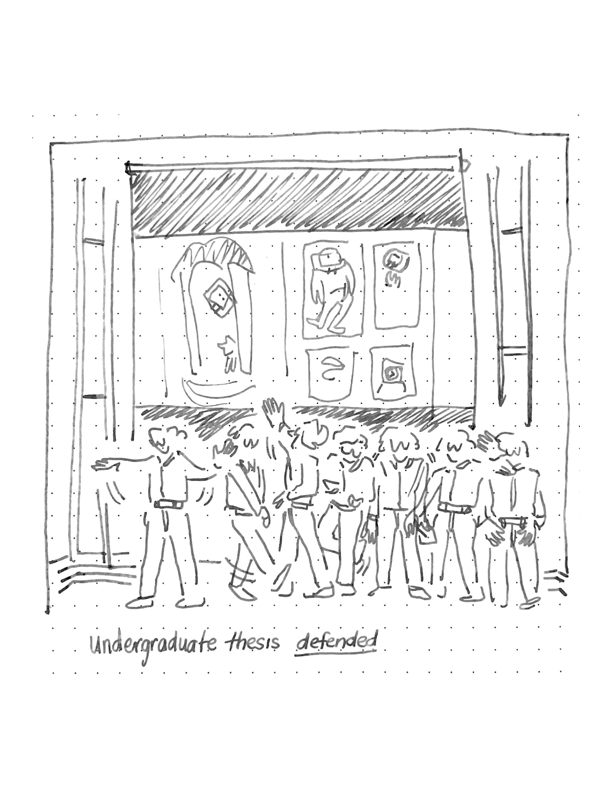 Undergraduate thesis defended